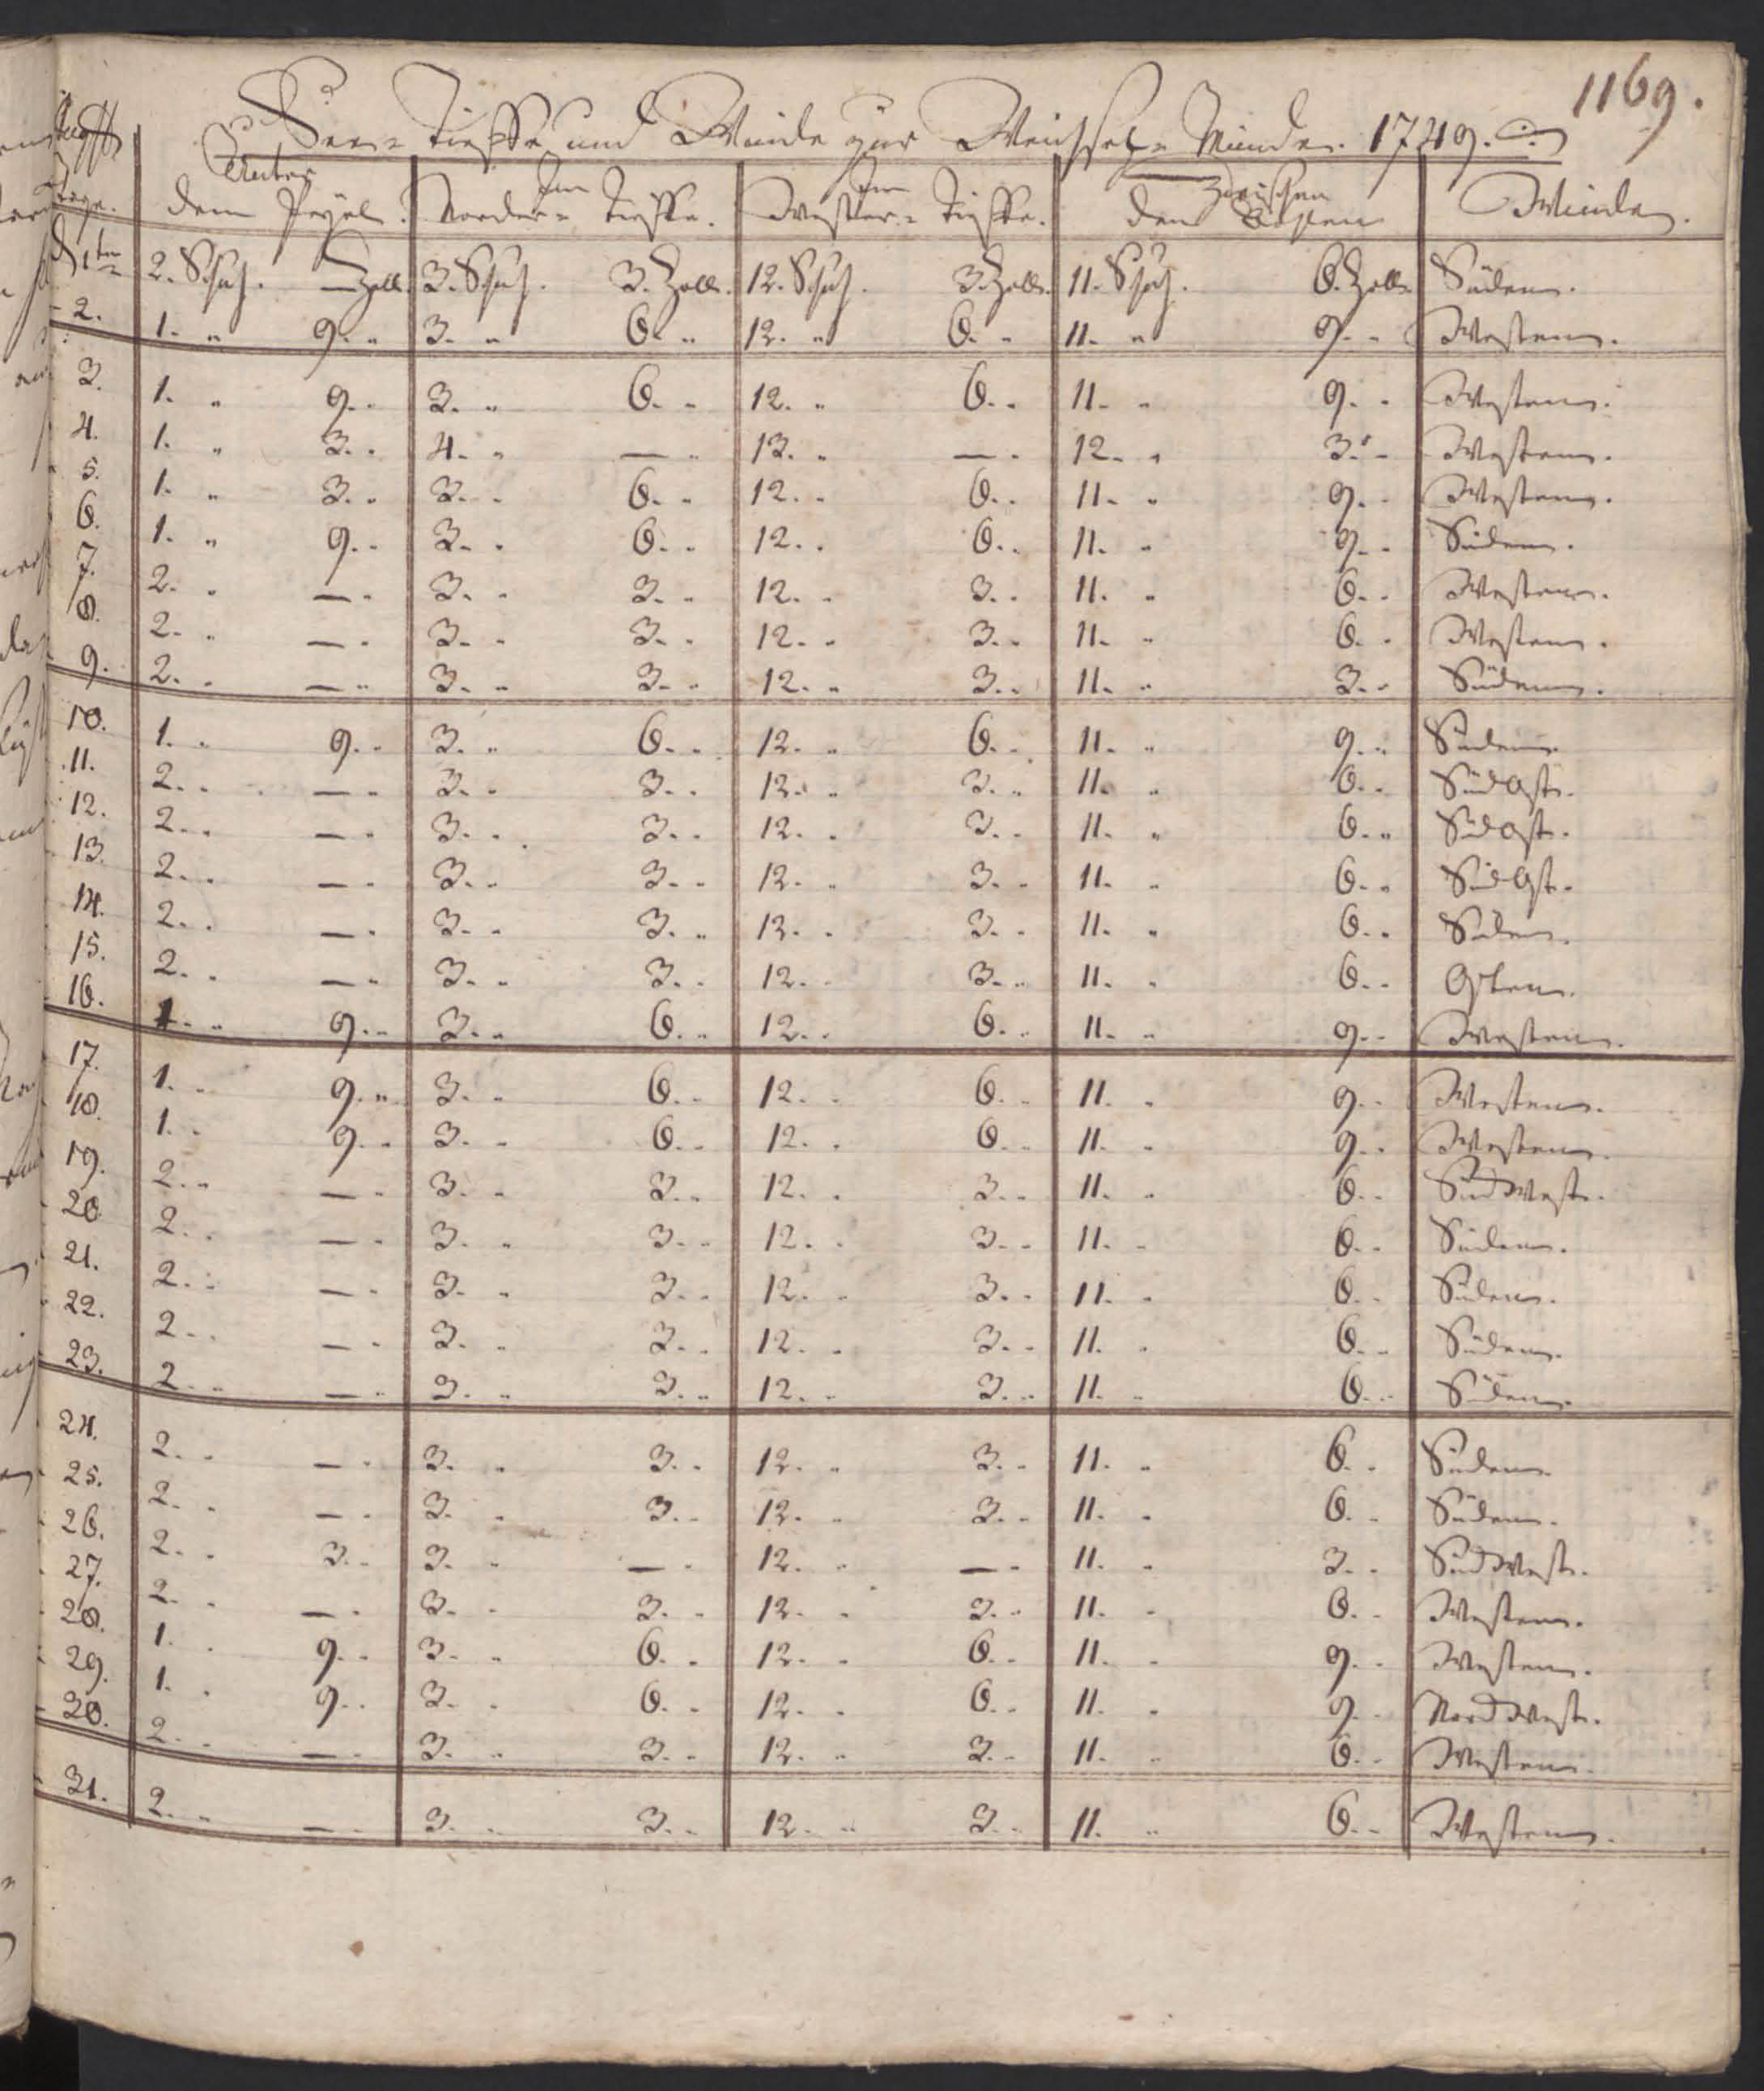 1169.
See- Tieffe und Winde zur Weichsel- Münde. 1749.
Augst.
Tage.
Unter dem Pegel.
Im Norder- Tieffe.
Im Wester- Tieffe.
Zwischen den Kisten
Winde.
D 1ten 2. Schuh. — Zoll. 3. Schuh. 3. Zoll. 12. Schuh. 3. Zoll. 11. Schuh. 6. Zoll. Süden.
- 2. 1. " 9. " 3. " 6. " 12. " 6. " 11. " 9. " Westen.
3. 1. " 9. " 3. " 6. " 12. " 6. " 11. " 9. " Westen.
4. 1. " 3. " 4. " — " 13. " — " 12. " 3. " Westen.
5. 1. " 3. " 3. " 6. " 12. " 6. " 11. " 9. " Westen.
6. 1. " 9. " 3. " 6. " 12. " 6. " 11. " 9. " Süden.
7. 2. " — " 3. " 3. " 12. " 3. " 11. " 6. " Westen.
8. 2. " — " 3. " 3. " 12. " 3. " 11. " 6. " Westen.
9. 2. " — " 3. " 3. " 12. " 3. " 11. " 3. " Süden.
10. 1. " 9. " 3. " 6. " 12. " 6. " 11. " 9. " Süden.
11. 2. " — " 3. " 3. " 12. " 3. " 11. " 6. " SüdOst.
12. 2. " — " 3. " 3. " 12. " 3. " 11. " 6. " SüdOst.
13. 2. " — " 3. " 3. " 12. " 3. " 11. " 6. " SüdOst.
14. 2. " — " 3. " 3. " 12. " 3. " 11. " 6. " Süden.
15. 2. " — " 3. " 3. " 12. " 3. " 11. " 6. " Osten.
16. 1. " 9. " 3. " 6. " 12. " 6. " 11. " 9. " Westen.
17. 1. " 9. " 3. " 6. " 12. " 6. " 11. " 9. " Westen.
18. 1. " 9. " 3. " 6. " 12. " 6. " 11. " 9. " Westen.
19. 2. " — " 3. " 3. " 12. " 3. " 11. " 6. " SüdWest.
20 2. " — " 3. " 3. " 12. " 3. " 11. " 6. " Süden.
21. 2. " — " 3. " 3. " 12. " 3. " 11. " 6. " Süden.
22. 2. " — " 3. " 3. " 12. " 3. " 11. " 6. " Süden.
23. 2. " — " 3. " 3. " 12. " 3. " 11. " 6. " Süden.
24. 2. " — " 3. " 3. " 12. " 3. " 11. " 6. " Süden.
25. 2. " — " 3. " 3. " 12. " 3. " 11. " 6. " Süden.
26. 2. " 3. " 3. " — " 12. " — " 11. " 3. " SüdWest.
27. 2. " — " 3. " 3. " 12. " 3. " 11. " 6. " Westen.
28. 1. " 9. " 3. " 6. " 12. " 6. " 11. " 9. " Westen.
29. 1. " 9. " 3. " 6. " 12. " 6. " 11. " 9. " NordWest.
30. 2. " — " 3. " 3. " 12. " 3. " 11. " 6. " Westen.
31. 2. " — " 3. " 3. " 12. " 3. " 11. " 6. " Westen.